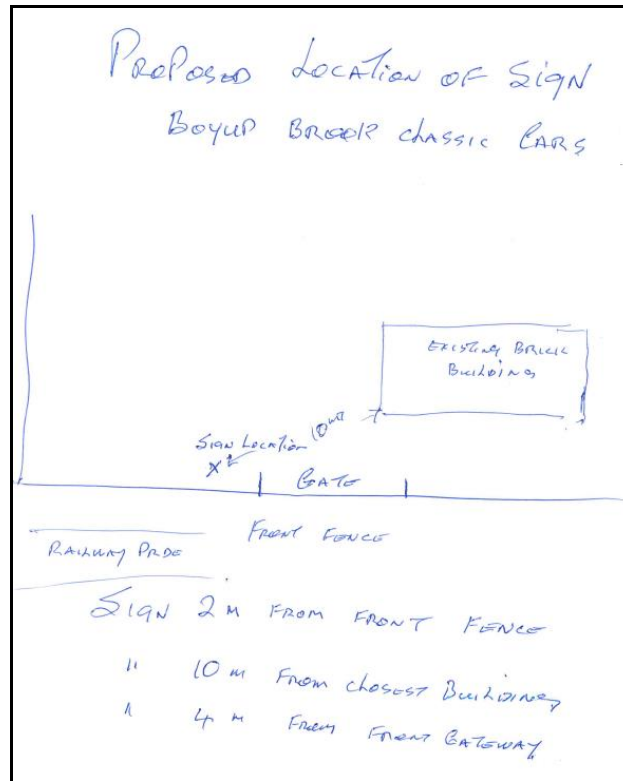 PROPOSED LOCATION OF SIGN
BOYUP BROOK CLASSIC CARS
EXISTING BRICK
BUILDING
10 mtr
SIGN LOCATION
X
GATE
FRONT FENCE
RAILWAY PRDE
SIGN 2 M FROM FRONT FENCE
" 10 m FROM CLOSEST BUILDING
" 4 m FROM FRONT GATEWAY